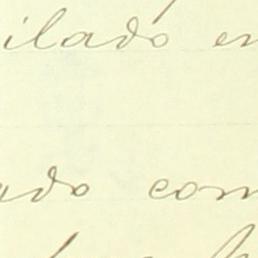 ilado en
ado com